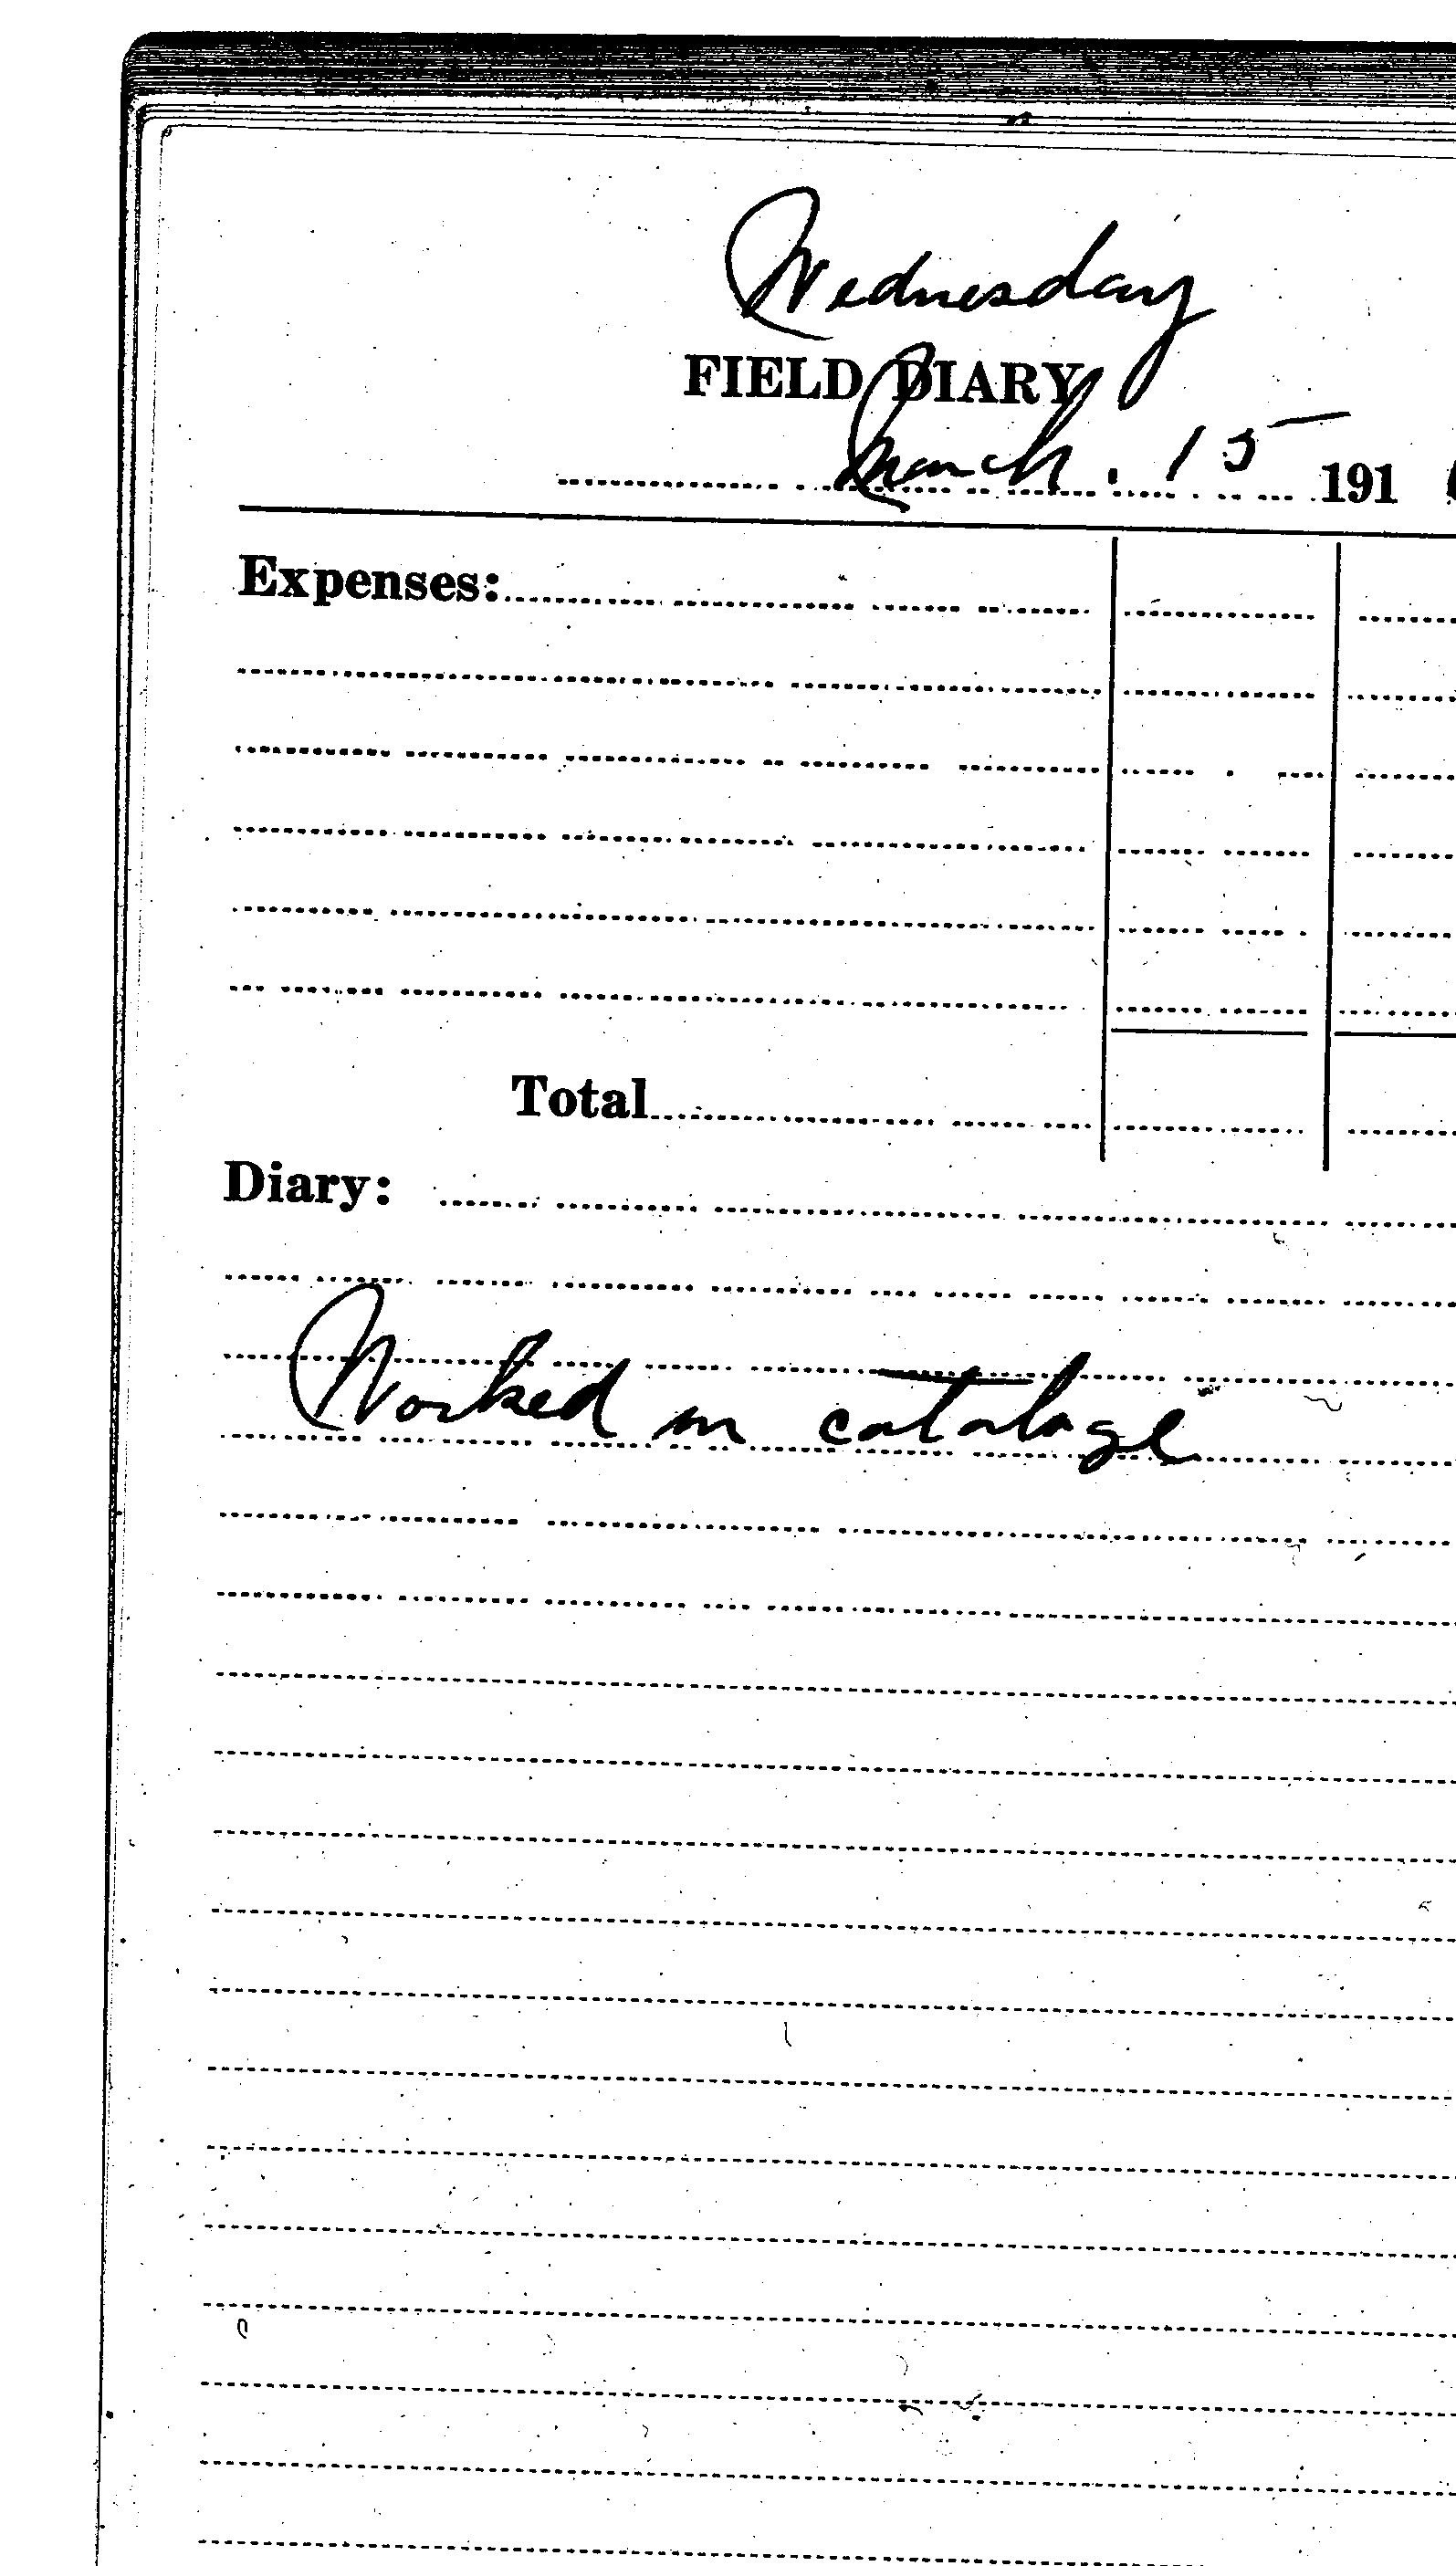 Wednesday
FIELD DIARY
March. 15 191
Expenses:
Total
Diary:
Worked on cataloge